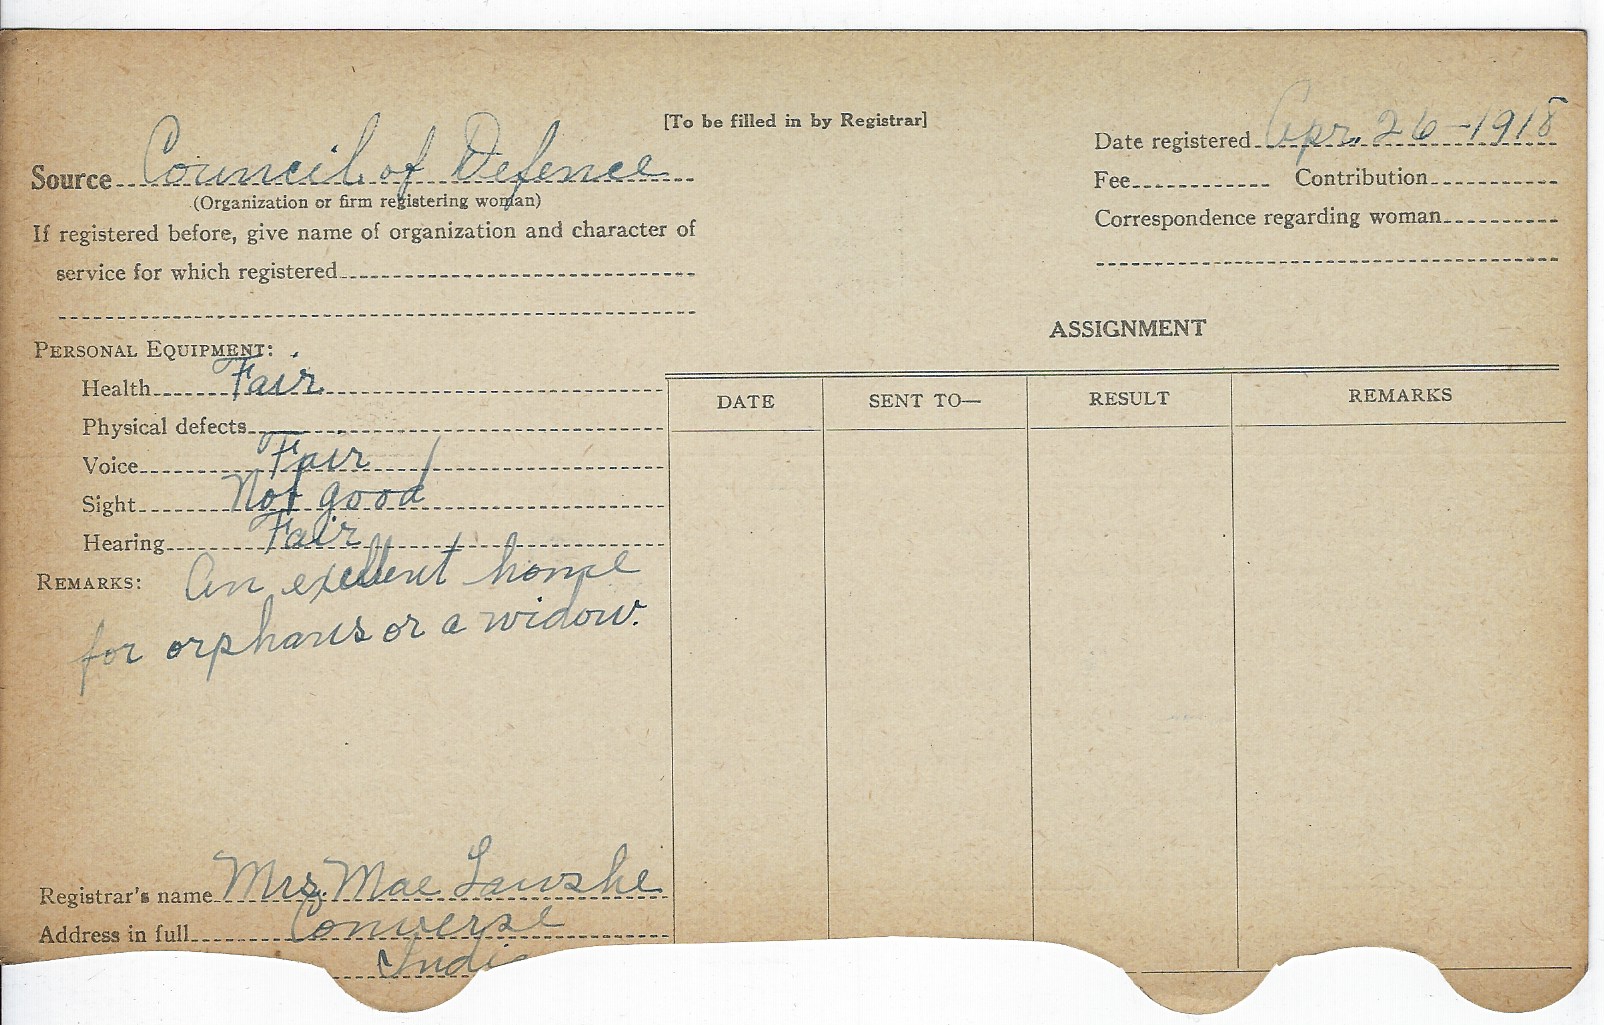 [To be filled in by Registrar]
Source Council of Defence
(Organization or firm registering woman)
If registered before, give name of organization and character of
service for which registered
Date registered Apr. 26-1918
Fee Contribution
Correspondence regarding woman
PERSONAL EQUIPMENT:
Health Fair
Physical defects
Voice Fair
Sight Not good
Hearing Fair
REMARKS: An exellent home
for orphans or a widow.
Registrar's name Mrs. Mae Lawshe
Address in full Converse
India
ASSIGNMENT
DATE SENT TO— RESULT REMARKS